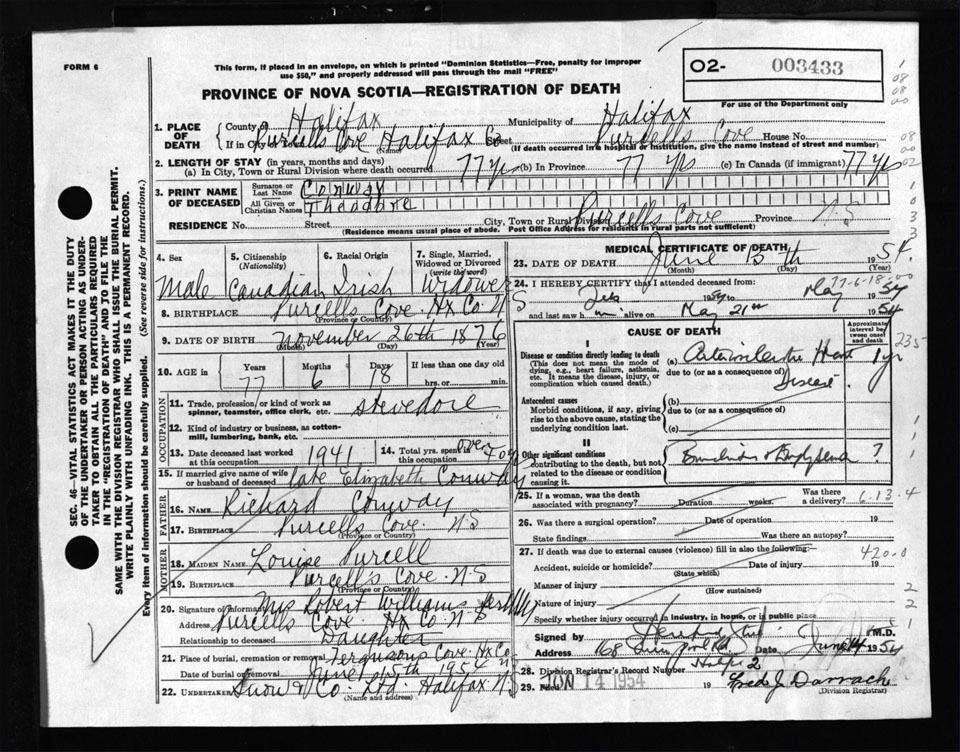 FORM 6
This form, if placed in an envelope, on which is printed "Dominion Statistics—Free, penalty for improper
use $50," and properly addressed will pass through the mail "FREE"
O2- 003433
For use of the Department only
PROVINCE OF NOVA SCOTIA—REGISTRATION OF DEATH
1. PLACE OF DEATH { County of Halifax Municipality of Halifax
If in City or Town Purcells Cove Halifax Co Street Purcells Cove House No.
(Name) (If death occurred in a hospital or institution, give the name instead of street and number)
2. LENGTH OF STAY (in years, months and days)
(a) In City, Town or Rural Division where death occurred 77 yrs (b) In Province 77 yrs (c) In Canada (if immigrant) 77 yrs
3. PRINT NAME OF DECEASED { Surname or Last Name Conway
All Given or Christian Names Theodore
RESIDENCE No. Street City, Town or Rural Division Purcells Cove Province N.S
(Residence means usual place of abode. Post Office Address for residents in rural parts not sufficient)
4. Sex Male
5. Citizenship (Nationality) Canadian
6. Racial Origin Irish
7. Single, Married, Widowed or Divorced (write the word) Widower
8. BIRTHPLACE Purcells Cove. Hx Co N
(Province or Country)
9. DATE OF BIRTH November 26th 1876
(Month) (Day) (Year)
10. AGE in Years 77 Months 6 Days 18 If less than one day old hrs. or min.
OCCUPATION
11. Trade, profession or kind of work as spinner, teamster, office clerk, etc. Stevedore
12. Kind of industry or business, as cotton-mill, lumbering, bank, etc.
13. Date deceased last worked at this occupation 1941
14. Total yrs. spent in this occupation over 40 y
15. If married give name of wife or husband of deceased late Elizabeth Conway
FATHER
16. NAME Richard Conway
17. BIRTHPLACE Purcells Cove. N.S
(Province or Country)
MOTHER
18. MAIDEN NAME Louise Purcell
19. BIRTHPLACE Purcells Cove. N.S
(Province or Country)
20. Signature of informant Mrs Robert Williams
Address Purcells Cove. Hx Co. N.S
Relationship to deceased Daughter
21. Place of burial, cremation or removal Fergusons Cove. Hx Co N
Date of burial or removal June 15th 1954
22. UNDERTAKER Snow & Co Ltd Halifax N.
(Name and address)
MEDICAL CERTIFICATE OF DEATH
23. DATE OF DEATH June 13th 1954
(Month) (Day) (Year)
24. I HEREBY CERTIFY that I attended deceased from:
May 54
77-6-18-00
and last saw h im alive on May 21st 1954
CAUSE OF DEATH
Approximate interval between onset and death
I
Disease or condition directly leading to death
(This does not mean the mode of dying, e.g., heart failure, asthenia, etc. It means the disease, injury, or complication which caused death.)
(a) Heart Disease. 1 yr
due to (or as a consequence of)
Antecedent causes
Morbid conditions, if any, giving rise to the above cause, stating the underlying condition last.
(b)
due to (or as a consequence of)
(c)
II
Other significant conditions
contributing to the death, but not related to the disease or condition causing it.
?
25. If a woman, was the death associated with pregnancy? Duration weeks. Was there a delivery? 6-13-4
26. Was there a surgical operation? Date of operation 19
State findings Was there an autopsy?
27. If death was due to external causes (violence) fill in also the following:— 420-0
Accident, suicide or homicide? Date of injury 19
(State which)
Manner of injury
(How sustained)
Nature of injury
Specify whether injury occurred in industry, in home, or in public place
Signed by M.D.
Address 168 Date June 14 1954
28. Division Registrar's Record Number
29. Filed JUN 14 1954 19 Fred J. Darrach
(Division Registrar)
SEC. 46 VITAL STATISTICS ACT MAKES IT THE DUTY
OF THE UNDERTAKER OR PERSON ACTING AS UNDER-
TAKER TO OBTAIN ALL THE PARTICULARS REQUIRED
IN THE "REGISTRATION OF DEATH" AND TO FILE THE
SAME WITH THE DIVISION REGISTRAR WHO SHALL ISSUE THE BURIAL PERMIT.
WRITE PLAINLY WITH UNFADING INK. THIS IS A PERMANENT RECORD.
Every item of information should be carefully supplied. (See reverse side for instructions.)